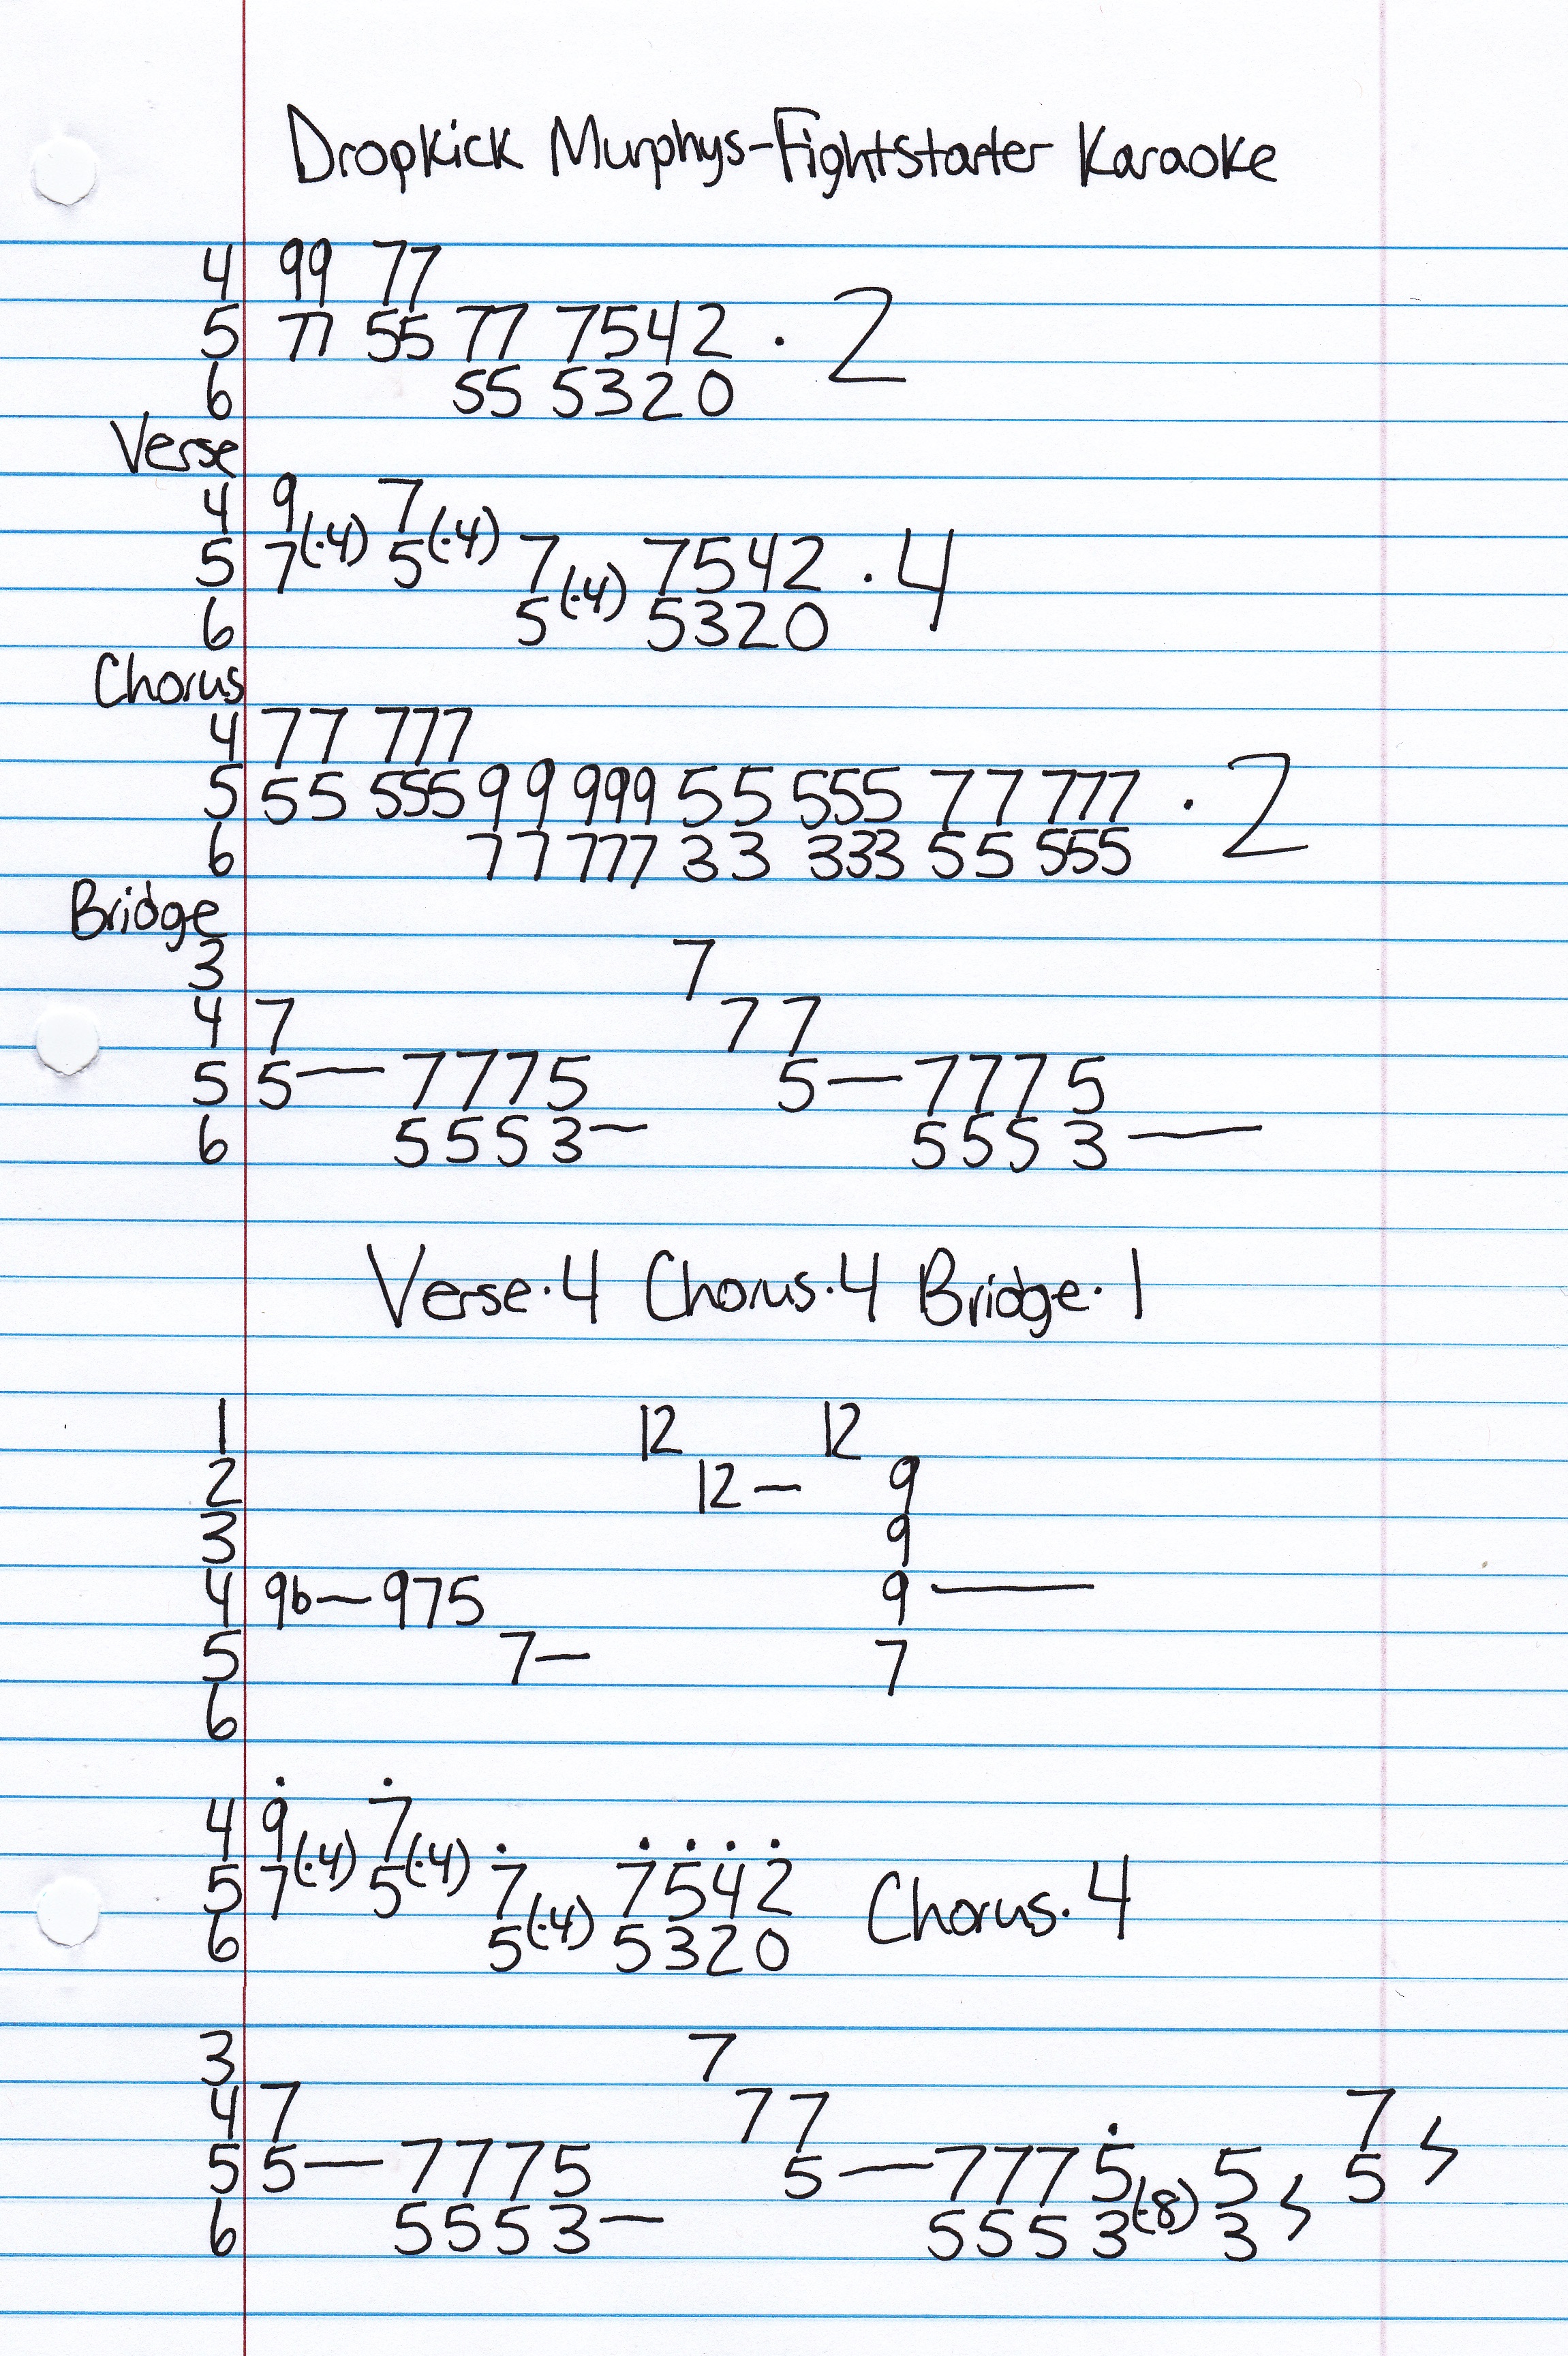 Dropkick Murphys-Fightstarter Karaoke
4 99 77
5 77 55 77 7542 · 2
6 55 5320
Verse
4 9 7
5 7(·4) 5(·4) 7 7542 · 4
6 5(·4) 5320
Chorus
4 77 777
5 55 555 99 999 55 555 77 777 · 2
6 77 777 33 333 55 555
Bridge
3 7
4 7 77
5 5— 7775 5— 7775
6 5553— 5553—
Verse·4 Chorus·4 Bridge·1
1 12 12
2 12— 9
3 9
4 9b—975 9—
5 7— 7
6
4 9 7
5 7(·4) 5(·4) 7 7542 Chorus·4
6 5(·4) 5320
3 7
4 7 77 7
5 5— 7775 5— 7775 5 5
6 5553— 5553(·8) 3